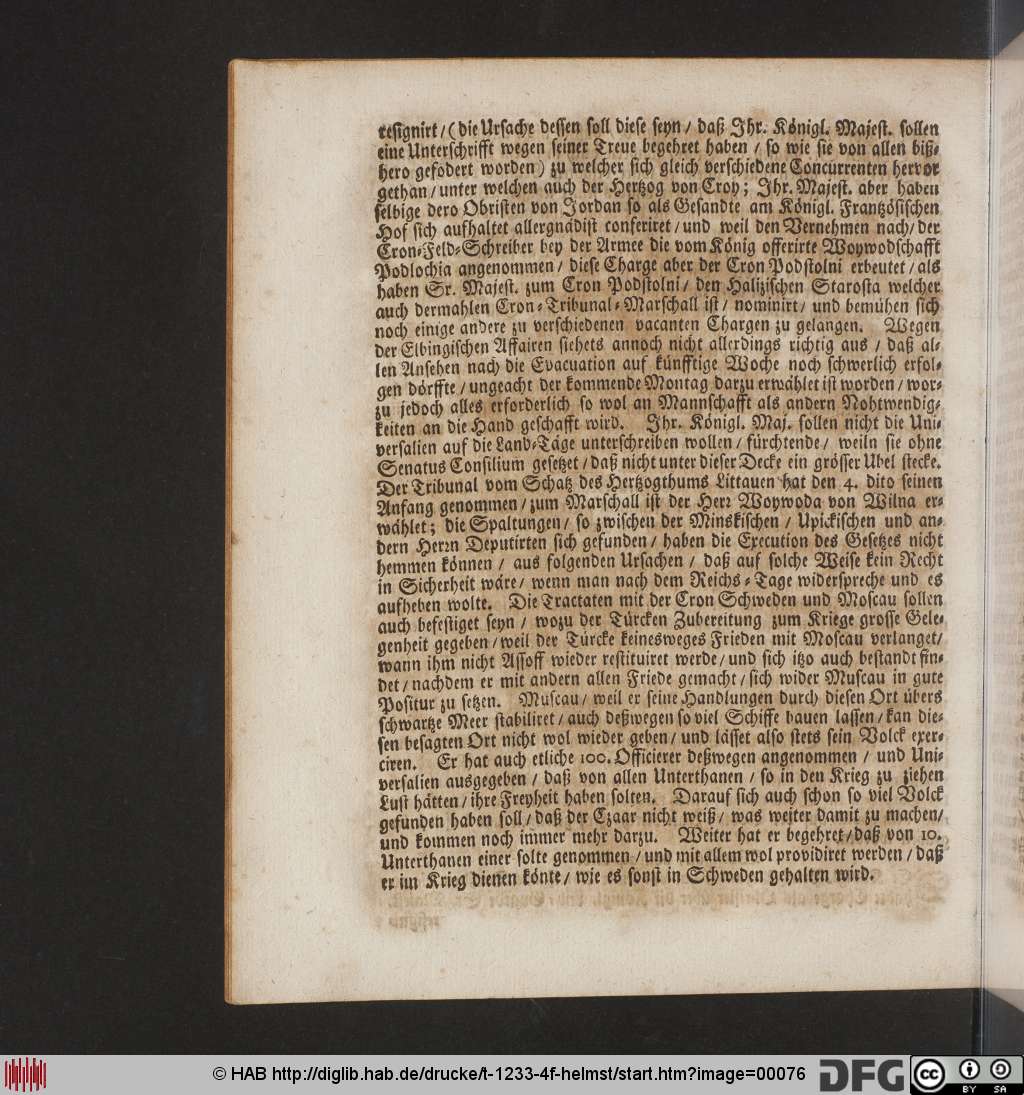 resignirt / (die Ursache dessen soll diese seyn / daß Ihr. Königl. Majest. sollen
eine Unterschrifft wegen seiner Treue begehret haben / so wie sie von allen biß-
hero gefodert worden) zu welcher sich gleich verschiedene Concurrenten hervor
gethan / unter welchen auch der Hertzog von Croy; Ihr. Majest. aber haben
selbige dero Obristen von Jordan so als Gesandte am Königl. Frantzösischen
Hof sich aufhaltet allergnädist conferiret / und weil den Vernehmen nach / der
Cron-Feld-Schreiber bey der Armee die vom König offerirte Woywodschafft
Podlochia angenommen / diese Charge aber der Cron Podstolni erbeutet / als
haben Sr. Majest. zum Cron Podstolni / den Halizischen Starosta welcher
auch dermahlen Cron-Tribunal-Marschall ist / nominirt / und bemühen sich
noch einige andere zu verschiedenen vacanten Chargen zu gelangen. Wegen
der Elbingischen Affairen siehets annoch nicht allerdings richtig aus / daß al-
len Ansehen nach die Evacuation auf künfftige Woche noch schwerlich erfol-
gen dörffte / ungeacht der kommende Montag darzu erwählet ist worden / wor-
zu jedoch alles erforderlich so wol an Mannschafft als andern Nohtwendig-
keiten an die Hand geschafft wird. Ihr. Königl. Maj. sollen nicht die Uni-
versalien auf die Land-Täge unterschreiben wollen / fürchtende / weiln sie ohne
Senatus Consilium gesetzet / daß nicht unter dieser Decke ein grösser Ubel stecke.
Der Tribunal vom Schatz des Hertzogthums Littauen hat den 4. dito seinen
Anfang genommen / zum Marschall ist der Herr Woywoda von Wilna er-
wählet; die Spaltungen / so zwischen der Minskischen / Upickischen und an-
dern Herrn Deputirten sich gefunden / haben die Execution des Gesetzes nicht
hemmen können / aus folgenden Ursachen / daß auf solche Weise kein Recht
in Sicherheit wäre / wenn man nach dem Reichs-Tage widerspreche und es
aufheben wolte. Die Tractaten mit der Cron Schweden und Moscau sollen
auch befestiget seyn / wozu der Türcken Zubereitung zum Kriege grosse Gele-
genheit gegeben / weil der Türcke keinesweges Frieden mit Moscau verlanget /
wann ihm nicht Assoff wieder restituiret werde / und sich itzo auch bestandt fin-
det / nachdem er mit andern allen Friede gemacht / sich wider Muscau in gute
Positur zu setzen. Muscau / weil er seine Handlungen durch diesen Ort übers
schwartze Meer stabiliret / auch deßwegen so viel Schiffe bauen lassen / kan die-
sen besagten Ort nicht wol wieder geben / und lässet also stets sein Volck exer-
ciren. Er hat auch etliche 100. Officierer deßwegen angenommen / und Uni-
versalien ausgegeben / daß von allen Unterthanen / so in den Krieg zu ziehen
Lust hätten / ihre Freyheit haben solten. Darauf sich auch schon so viel Volck
gefunden haben soll / daß der Czaar nicht weiß / was weiter damit zu machen /
und kommen noch immer mehr darzu. Weiter hat er begehret / daß von 10.
Unterthanen einer solte genommen / und mit allem wol providiret werden / daß
er im Krieg dienen könte / wie es sonst in Schweden gehalten wird.
© HAB http://diglib.hab.de/drucke/t-1233-4f-helmst/start.htm?image=00076
DFG
cc BY SA